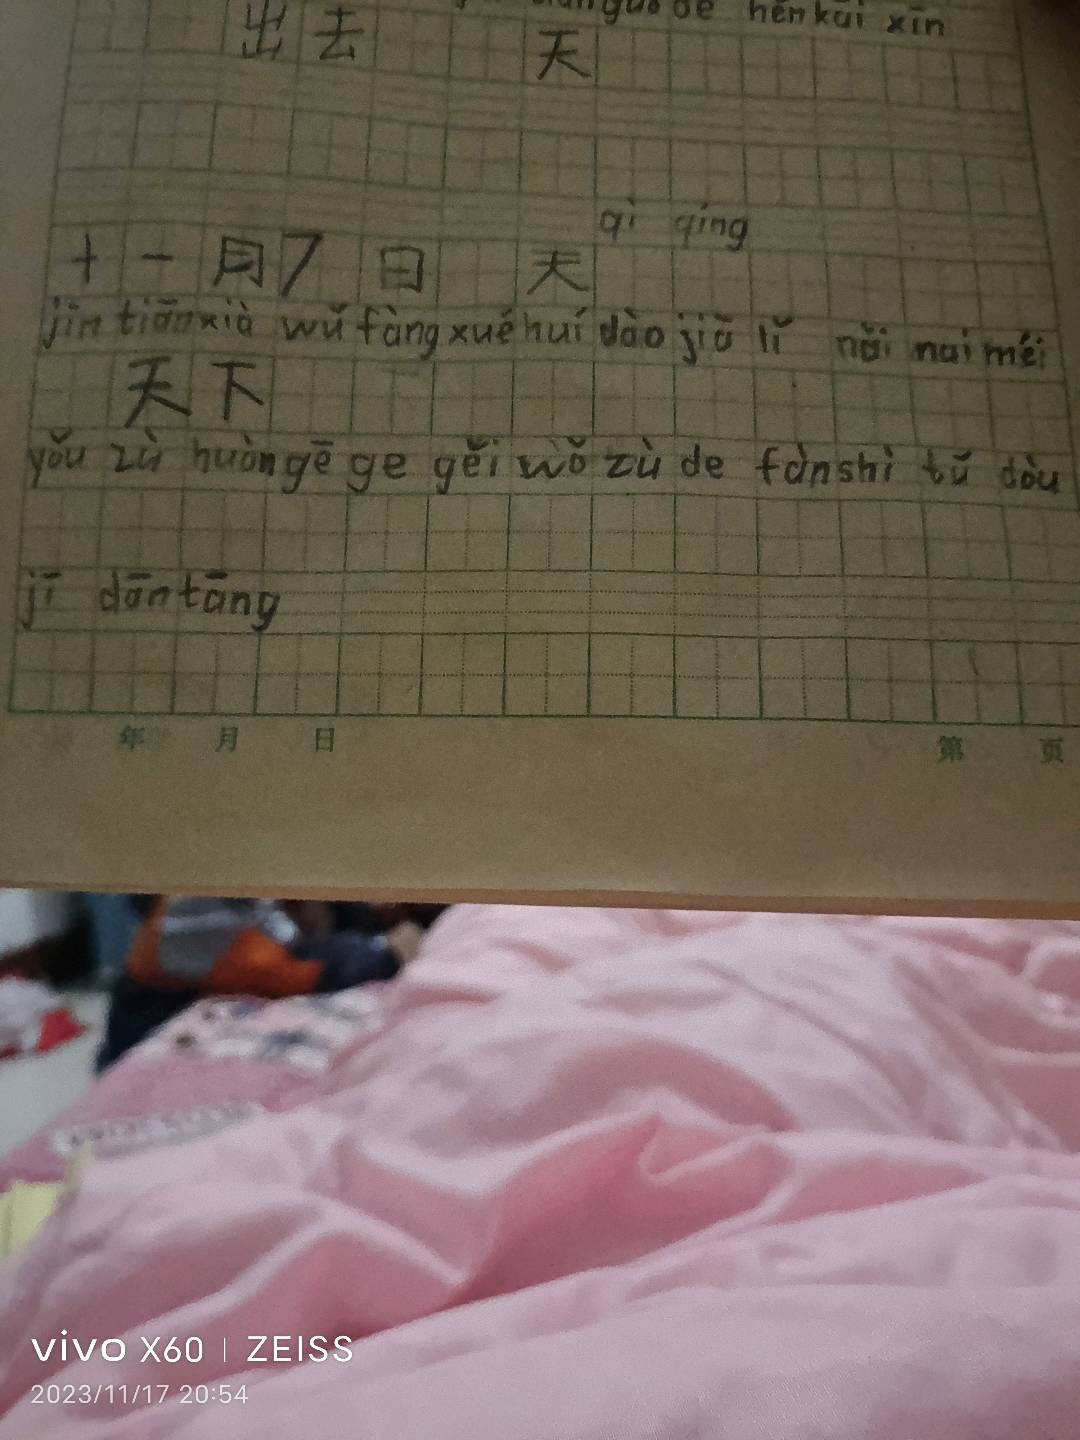 guo de hěn kāi xīn
出去 天
qì qíng
十一月7日 天
jīn tiān xià wǔ fàng xué huí dào jiā lǐ nǎi nai méi
天下
yǒu zù huàn gē ge gěi wǒ zù de fàn shì tǔ dòu
jī dān tāng
年 月 日 第 页
vivo X60 | ZEISS
2023/11/17 20:54